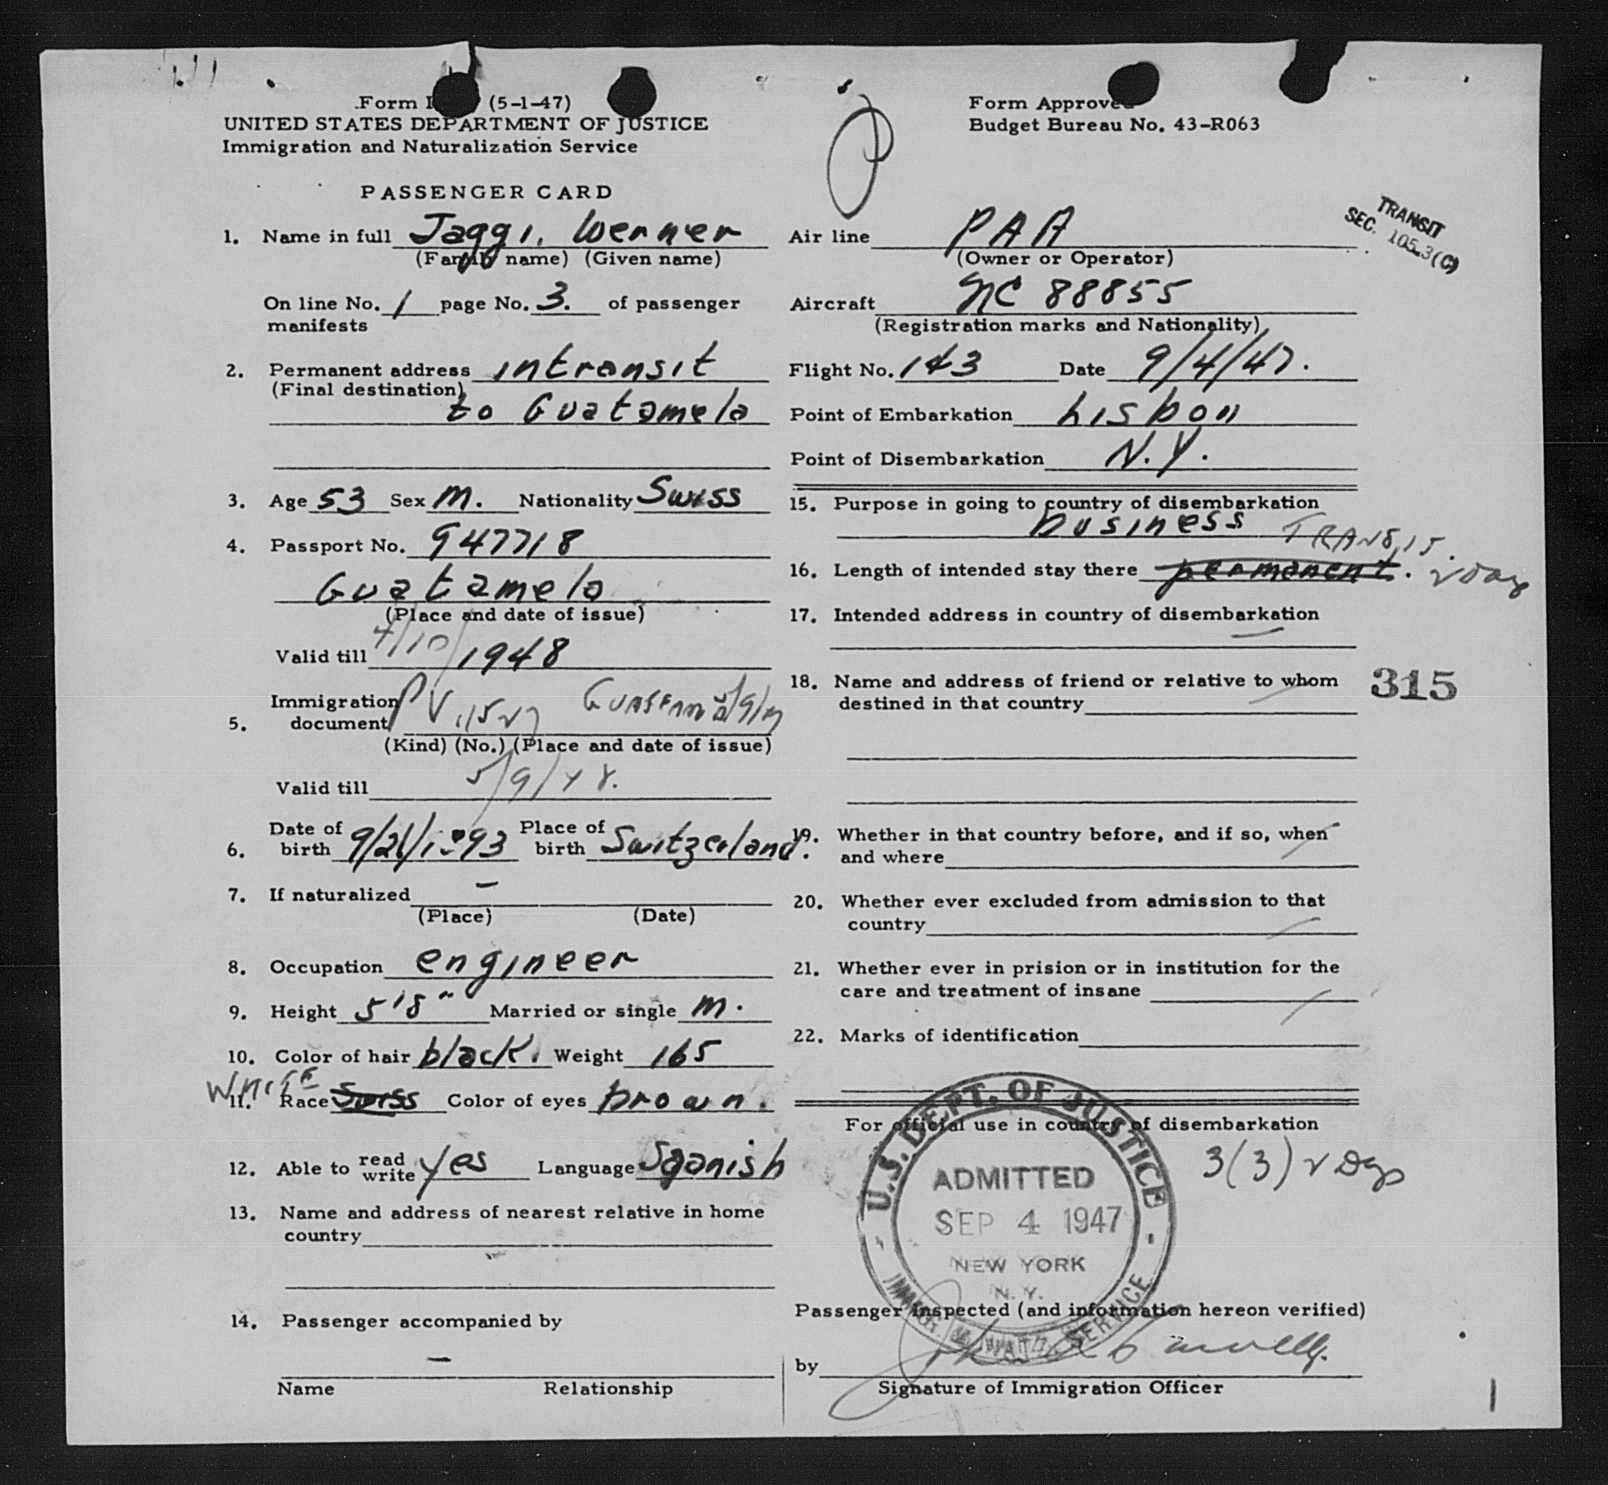 Form I (5-1-47)
UNITED STATES DEPARTMENT OF JUSTICE
Immigration and Naturalization Service
PASSENGER CARD
1. Name in full Jaggi, Werner
(Family name) (Given name)
On line No. 1 page No. 3. of passenger
manifests
2. Permanent address intransit
(Final destination)
to Guatamela
3. Age 53 Sex M. Nationality Swiss
4. Passport No. 947718
Guatamela
(Place and date of issue)
Valid till 4/10/1948
Immigration
5. document PV
(Kind) (No.) (Place and date of issue)
Valid till 5/9/48.
Date of Place of
6. birth 9/21/1893 birth Switzerland.
7. If naturalized -
(Place) (Date)
8. Occupation engineer
9. Height 5'8" Married or single M.
10. Color of hair black. Weight 165
WHITE
11. Race Swiss Color of eyes brown.
12. Able to read write yes Language Spanish
13. Name and address of nearest relative in home
country
14. Passenger accompanied by
-
Name Relationship
Form Approved
Budget Bureau No. 43-R063
TRANSIT
SEC. 105.3(C)
Air line PAA
(Owner or Operator)
Aircraft NC 88855
(Registration marks and Nationality)
Flight No. 143 Date 9/4/47.
Point of Embarkation Lisbon
Point of Disembarkation N.Y.
15. Purpose in going to country of disembarkation
business TRANSIT.
16. Length of intended stay there permanent. 2 Days
17. Intended address in country of disembarkation
18. Name and address of friend or relative to whom
destined in that country
315
19. Whether in that country before, and if so, when
and where
20. Whether ever excluded from admission to that
country
21. Whether ever in prision or in institution for the
care and treatment of insane
22. Marks of identification
For official use in country of disembarkation
3(3) 2 Dys
U.S. DEPT. OF JUSTICE
ADMITTED
SEP 4 1947
NEW YORK
N. Y.
IMMIGR. & NATZ. SERVICE
Passenger Inspected (and information hereon verified)
by
Signature of Immigration Officer
1